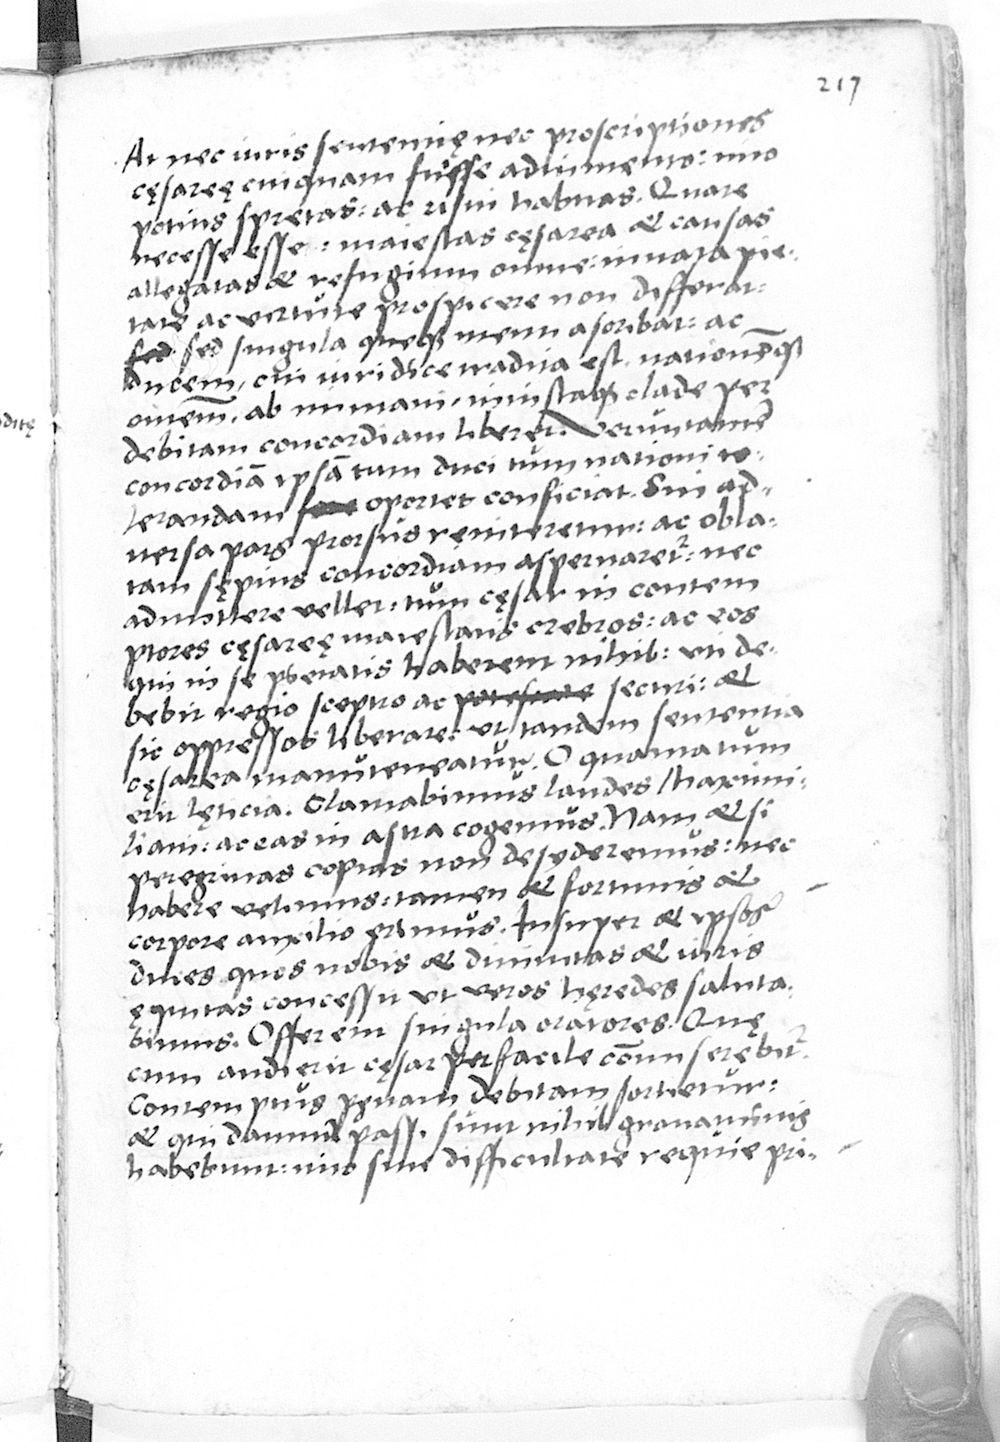 217
At nec iuris sententię nec proscriptiones
cęsareę cuiquam fuisse adiumento: imo
potius spretas: ac risui habitas. Quare
necesse esse: maiestas cęsarea & causas
allegatas & refugium omne: innata pie-
tate ac virtute prospicere non differat:
sed sed singula queq3 menti ascribat: ac
ducem, cui iuridice tradita est, nationẽq3
omnem̃, ab inmani, iniustaq3 clade per
debitam concordiam liberet. Veruntamẽ
concordiã ipsã tum duci tum nationi to-
lerandam oportet conficiat. Sin ad-
uersa pars prorsus reniteretur: ac obla-
tam sępius concordiam aspernaret̃: nec
admittere vellet: tum cęsar in contem
ptores cęsareę maiestatis crebros: ac eos
qui in se pietatis haberent nihil: uti de-
bebit regio sceptro ac potestate securi: &
sic oppressos liberare: ut tandem sententia
cęsarea manuteneatur. O quam tum
erit lęticia. Clamabimus laudes Maximi-
liani: ac eas in astra cogemus. Nam & si
peregrinas copias non desyderemus: nec
habere velimus: tamen & fortunis &
corpore auxilio erimus. Insuper & ipsos
duces quos nobis & diuinitas & iuris
ęquitas concessit ut veros hęredes saluta-
bimus. Offerent singula oratores. Quę
cum audierit cęsar perfacile
Contemptus pęnam debitam sortietur:
& qui damna passi sunt nihil grauaminis
habebunt: imo sine difficultate requie pri-
ditę